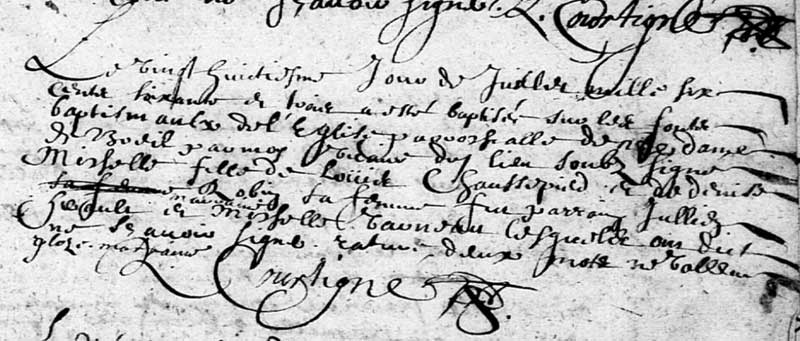 ne sçavoir signer. L. Courtigne
Le vingt huictiesme Jour de Juillet mille six
cents soixante et trois a esté baptisée sur les fonts
baptismaulx de l'Eglise parroishialle de Nre dame
de par moy vicaire du lieu soubz signé
Misselle fille de Louis Chaussepied et de denise
Robin sa femme fut parrain Jullien
marraine
et Misselle lesquels ont dict
ne sçavoir signer. raturé deux mots ne vallent
gloze marraine
Courtigne